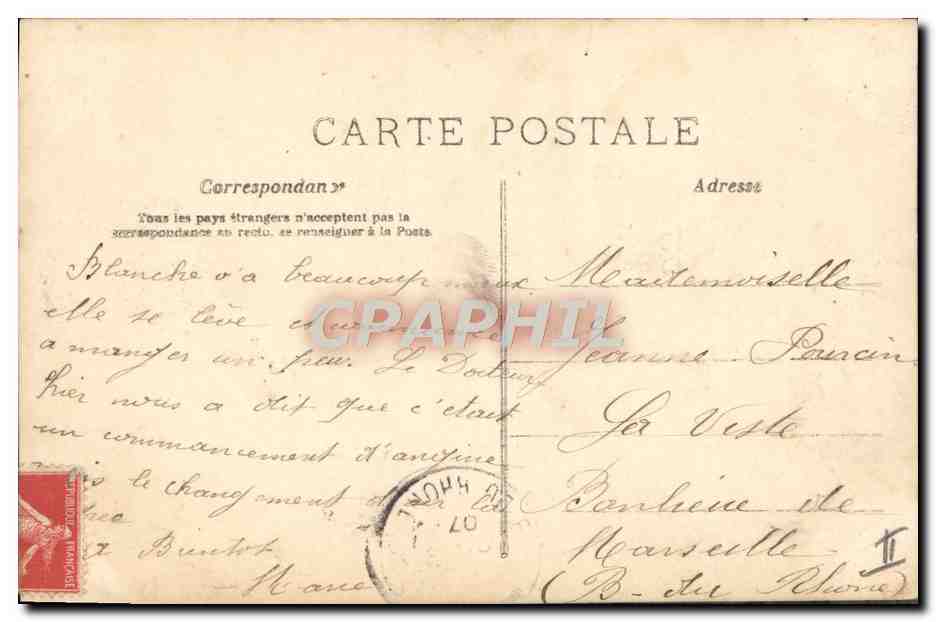 CARTE POSTALE
Correspondan
Tous les pays étrangers n'acceptent pas la
correspondance au recto, se renseigner à la Poste.
Blanche v'a beaucoup mieux
elle se lève et commence
a manger un peu. Le Docteur
hier nous a dit que c'était
un commancement d'angine
le changement d'air l'a
A Bientot
Marie
Adresse
Mademoiselle
Jeanne Pourcin
La Viste
Banlieue de
Marseille
(B- du Rhone)
II
REPUBLIQUE
FRANÇAISE
DU RHONE
07
CPAPHIL